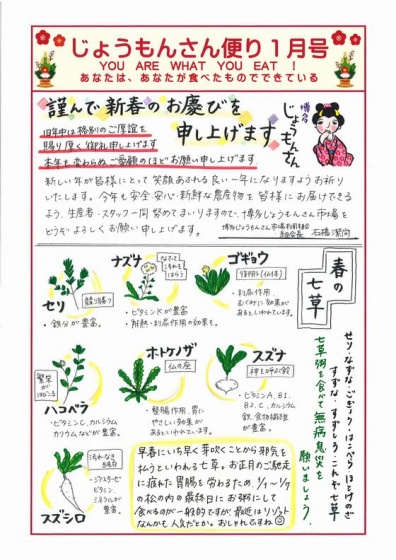 じょうもんさん便り1月号
YOU ARE WHAT YOU EAT !
あなたは、あなたが食べたものでできている
謹んで新春のお慶びを
申し上げます
博多
じょうもんさん
旧年中は格別のご厚誼を
賜り厚く御礼申し上げます
本年も変わらぬご愛顧のほどお願い申し上げます
新しい年が皆様にとって笑顔あふれる良い一年になりますようお祈り
いたします。今年も安全・安心・新鮮な農産物を皆様にお届けできる
よう、生産者・スタッフ一同努めてまいりますので、博多じょうもんさん市場を
どうぞよろしくお願い申し上げます。
春の七草
セリ
競り勝つ
・鉄分が豊富。
ナズナ
なでて
こちれを
はらう
・ビタミンKが豊富
・解熱・利尿作用の効果も。
ゴギョウ
御形(仏体)
・利尿作用
むくみに効果が
あるといわれています。
せり・なずな・ごぎょう・はこべら・ほとけのざ
すずな・すずしろ・これや七草
七草粥を食べて無病息災を
願いましょう。
繁栄が
はびこる
ハコベラ
・ビタミンC、カルシウム
カリウムなどが豊富。
ホトケノザ
仏の座
・整腸作用、胃に
やさしい効果が
あるといわれています。
スズナ
神を呼ぶ鈴
・ビタミンA、B1、
B2、C、カルシウム
鉄、食物繊維
が豊富。
汚れなき
純白
・ジアスターゼ
ビタミン、
ミネラルが
豊富。
スズシロ
早春にいち早く芽吹くことから邪気を
払うといわれる七草。お正月のご馳走
に疲れた胃腸を労わるため、1/1〜1/7
の松の内の最終日にお粥にして
食べるのが一般的ですが、最近はリゾット
なんかも人気だとか。おしゃれですね